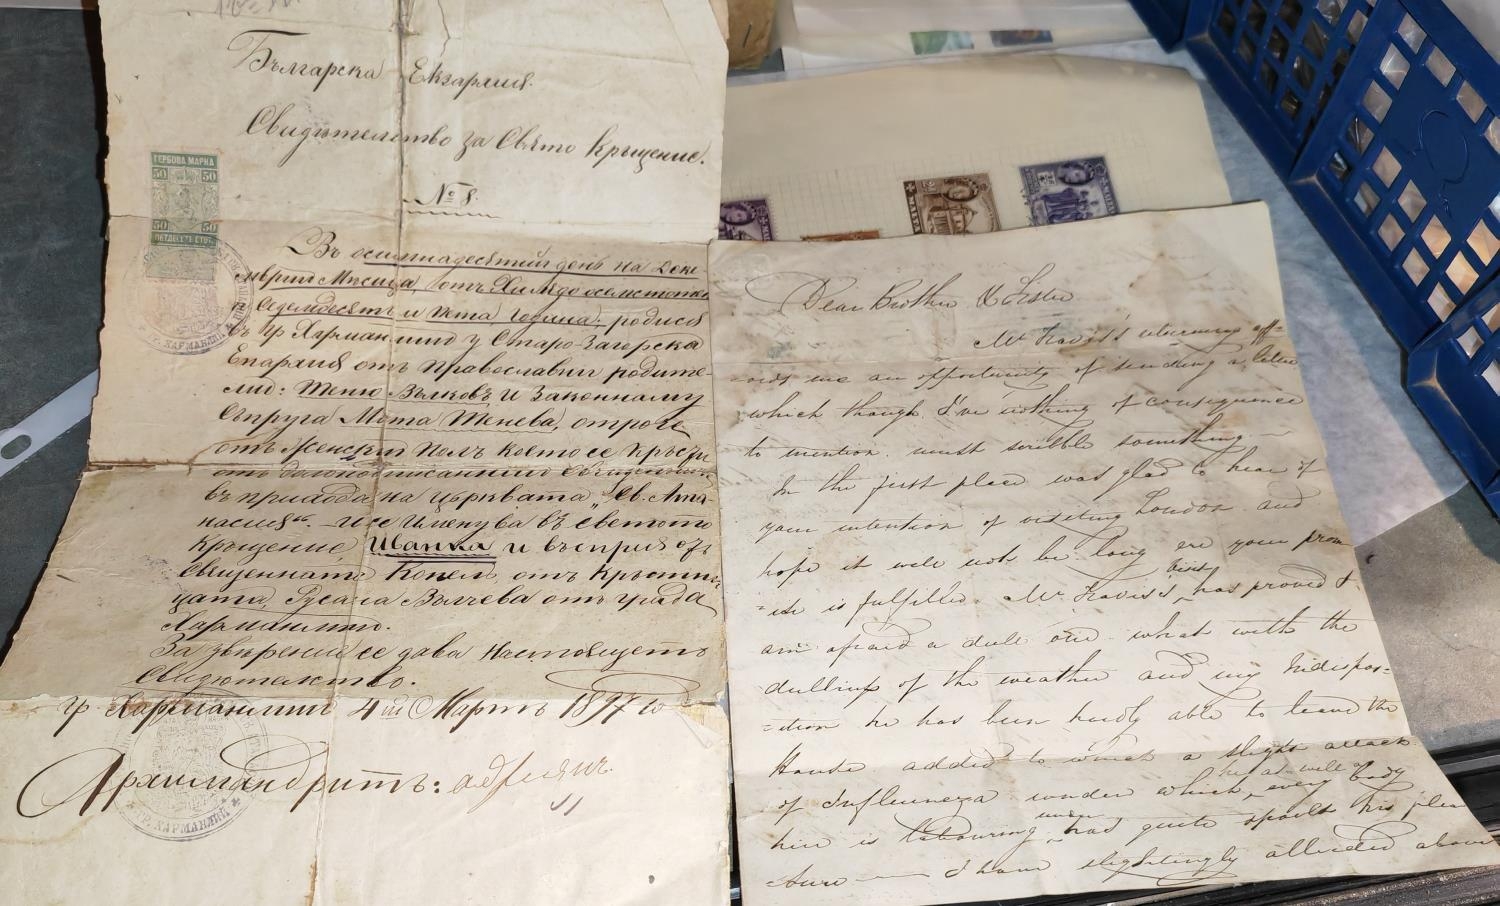 Българска Екзархия.
Свидѣтелство за Свято Кръщение.
№ 8.
ГЕРБОВА МАРКА
50 50
50 50
ПЕТДЕСЕТЬ СТОТ.
Въ осемнадесѣтий день на Деке-
мврий Мѣсеца, отъ Хилядо осемстотинъ
Седемдесеть и пета година, родися
въ гр Харманлий у Старо-Загорска
Епархия отъ православни родите-
ли: Теню Вълковъ и Законному
Съпруга Мота Тенева, отроче
отъ Женский полъ което се кръсти
отъ долоподписанний Священникъ
въ прихода на църквата „Св. Ата-
насия“. - и се именува въ светото
Крощение, Иванка и въсприя отъ
Священната Копел, отъ кръстни-
цата, Русала Вълчева отъ града
Харманлий.
За увѣрение се дава настоящето
Свидѣтелство.
гр Харманлий 4ий Мартъ 1897 год
Архимандритъ:
ГР. ХАРМАНЛИЙ
ГР. ХАРМАНЛИЙ
MALTA
Dear Brother & Sister
Mr Travis's returning aff-
-ords me an opportunity of sending a letter
which though I've nothing of consequence
to mention. must scribble something —
In the first place was glad to hear of
your intention of visiting London. and
hope it will not be long ere your prom-
-ise is fulfilled. Mr Travis's visit has proved I
am afraid a dull one. what with the
dullness of the weather and my Indispos-
-ition he has been hardly able to leave the
House added to which a slight attack
of Influenza under which, he as well as every body
here is labouring under had quite spoilt his plea-
-sure — I have slightingly alluded above